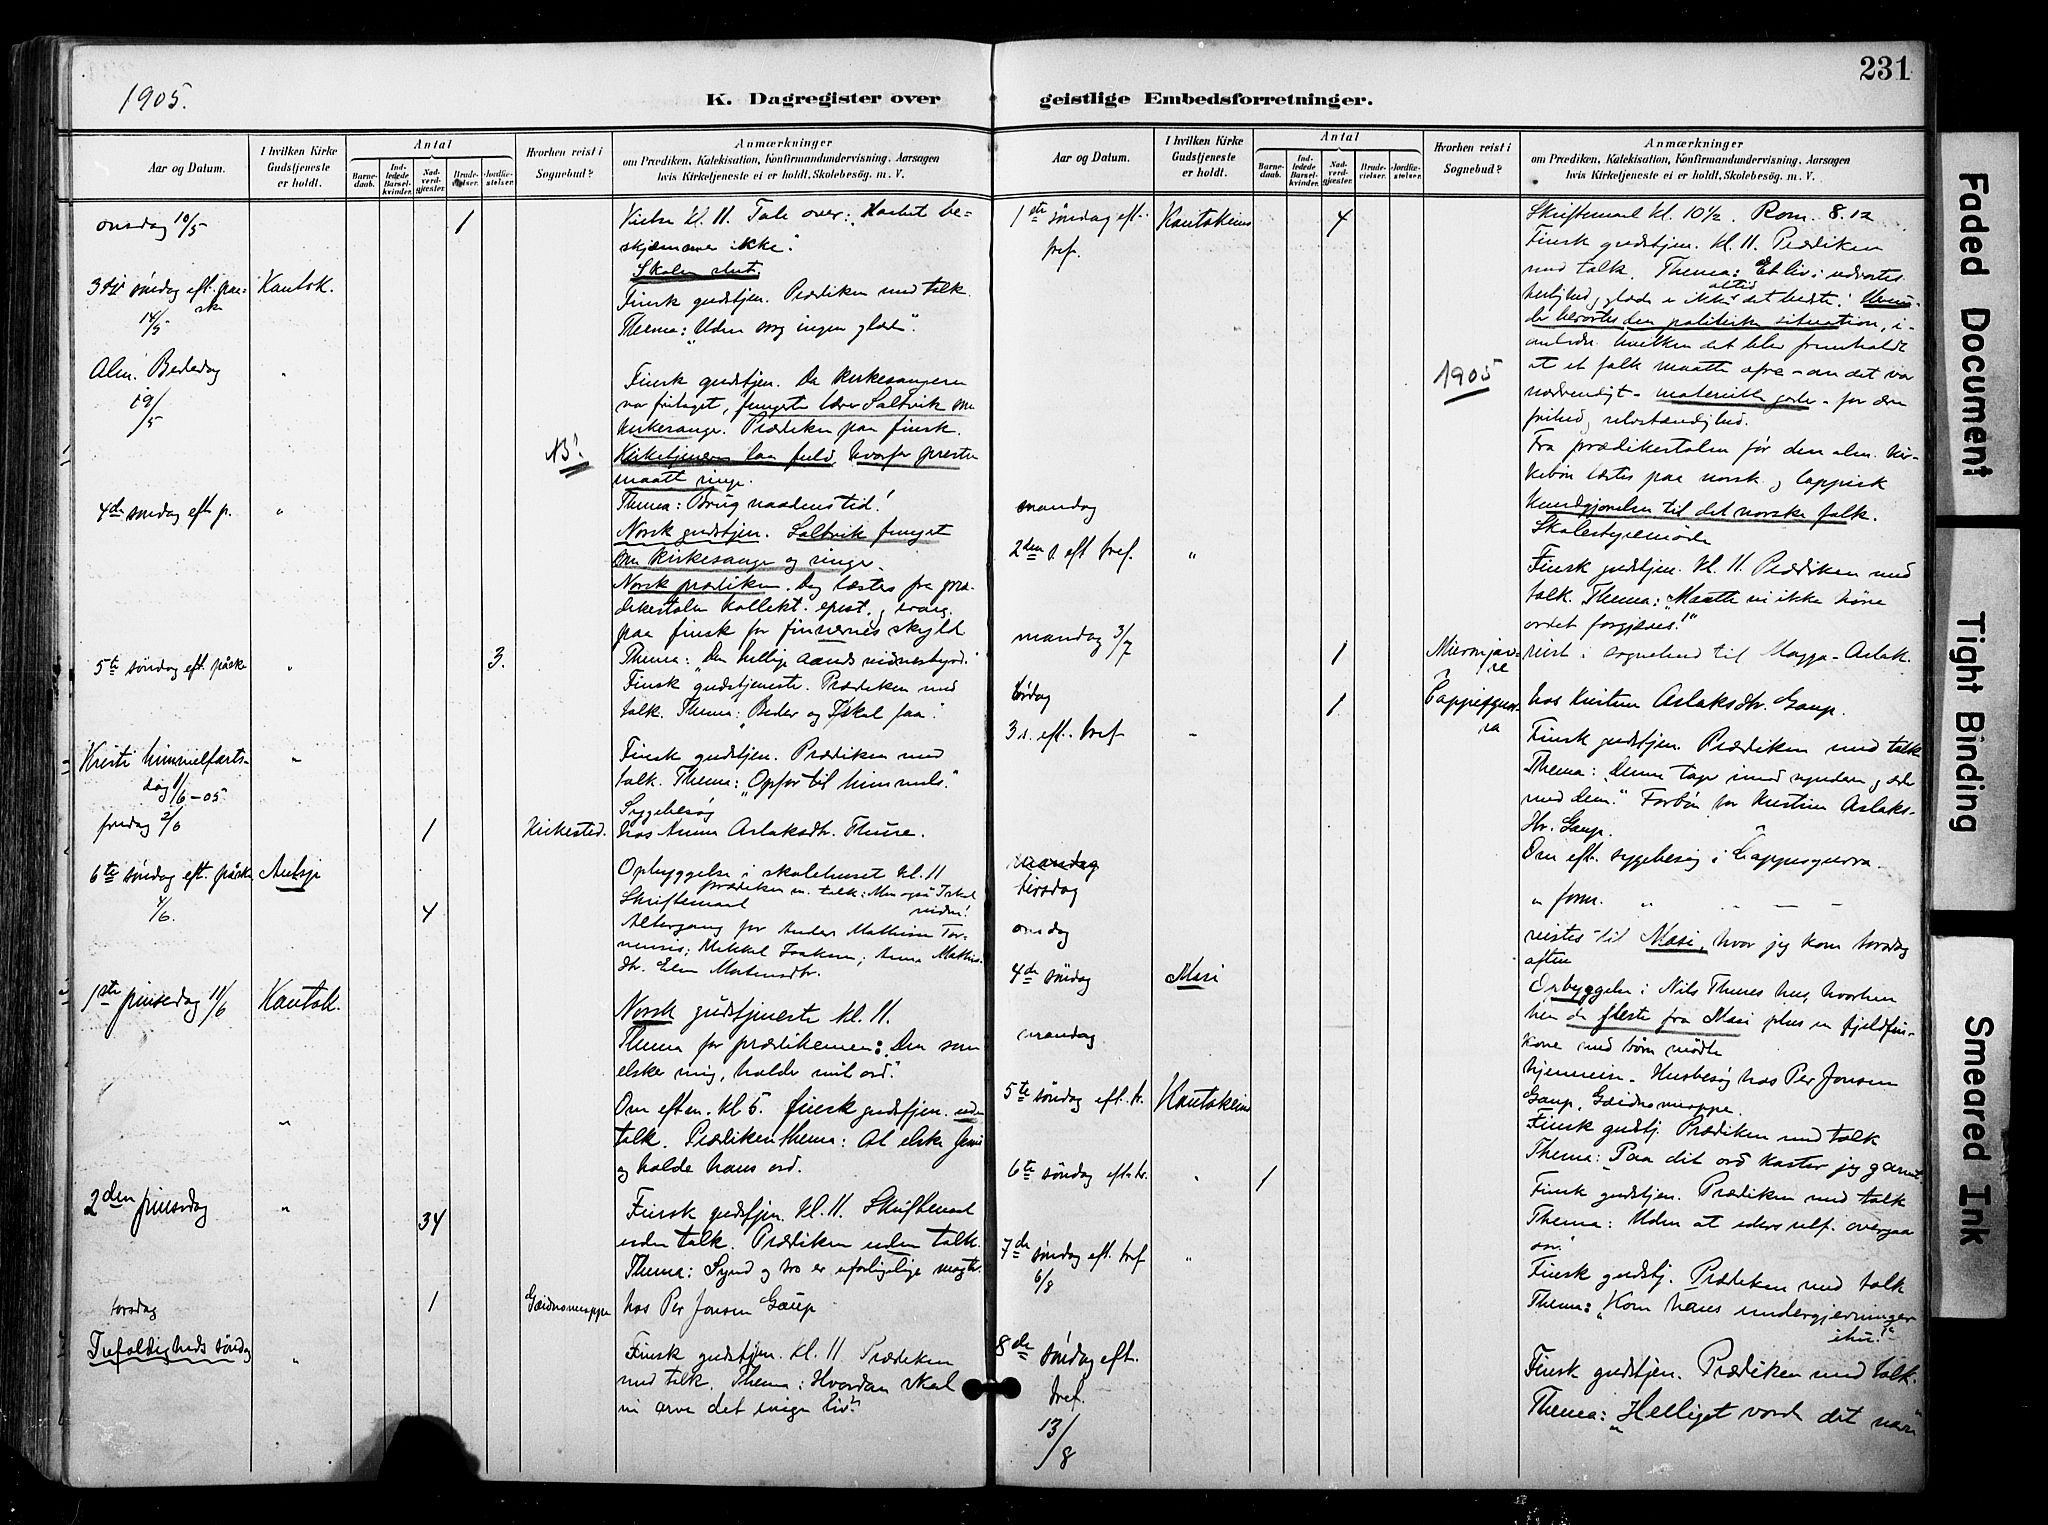 1905.
K. Dagregister over
Aar og Datum.
I hvilken Kirke Gudstjeneste er holdt.
Antal
Barne-daab.
Ind-ledede Barsel-kvinder.
Nad-verd-gjester.
Brude-vielser.
Jordfæ-stelser.
Hvorhen reist i Sognebud?
Anmærkninger
om Prædiken, Katekisation, Konfirmandundervisning, Aarsagen
hvis Kirketjeneste ei er holdt, Skolebesøg. m. V.
onsdag 10/5 1 Vielse kl. 11. Tale over: Haabet be-
skjæmmer ikke".
Skolen slut.
3dje søndag eft. paa-
ske
14/5
Kautok.
Finsk gudstjen. Prædiken med tolk.
Thema: "Uden sorg ingen glæde".
Alm. Bededag
19/5
"
Finsk gudstjen. Da kirkesangeren
var fritaget, fungerte lærer Saltvik som
kirkesanger. Prædiken paa finsk.
NB! Kirketjeneren laa fuld, hvorfor presten
maatte ringe.
Thema: Brug naadens tid!
4de søndag eft p. "
Norsk gudstjen. Saltvik funget
som kirkesanger og ringer.
Norsk prædiken. Dog læstes fra præ-
dikestolen kollekt. epist. og evang.
paa finsk for finnernes skyld
Thema: "Den hellige aands vidnesbyrd."
5te søndag eft. påske " 3.
Finsk gudstjeneste. Prædiken med
tolk. Thema: "Beder og I skal faa".
Kristi himmelfarts-
dag 1/6-05
"
Finsk gudstjen. Prædiken med
tolk. Thema: "Opfor til himmels".
Sygebesøg
fredag 2/6 1 Kirkested. hos Anna Aslaksdtr. Thure.
6te søndag eft. påske
4/6.
Autsje
4
Opbyggelse i skolehuset kl. 11
prædiken m. tolk: Men også I skal
vidne!
Skriftemaal
Altergang for Anders Mathisen
Mikkel Isaksen; Anna Mathis-
dtr. Elen Mortensdtr.
1ste pinsedag 11/6 Kautok.
Norsk gudstjeneste kl. 11.
Thema for prædikenen: "Den som
elsker mig, holder mit ord."
"
Om eftm. kl 5. finsk gudstjen. uden
tolk. Prædikenthema: At elske Jesus
og holde hans ord.
2den pinsedag " 34
Finsk gudstjen. kl. 11. Skriftemaal
uden tolk. Prædiken uden tolk.
Thema: Synd og tro er uforligelige magter.
torsdag 1 Gæidnomuoppe hos Per Jonsen Gaup
Trefoldigheds søndag "
Finsk gudstjen. kl. 11 Prædiken
med tolk. Thema: Hvordan skal
vi arve det evige liv?"
231
geistlige Embedsforretninger.
Aar og Datum.
I hvilken Kirke Gudstjeneste er holdt.
Antal
Barne-daab.
Ind-ledede Barsel-kvinder.
Nad-verd-gjester.
Brude-vielser.
Jordfæ-stelser.
Hvorhen reist i Sognebud?
Anmærkninger
om Prædiken, Katekisation, Konfirmandundervisning, Aarsagen
hvis Kirketjeneste ei er holdt, Skolebesøg. m. V.
1ste søndag eft.
tref.
Kautokeino
4
Skriftemaal kl. 10½. Rom. 8.12
Finsk gudstjen. kl. 11. Prædiken
med tolk. Thema: Et liv i udvortes
herlighed, glæde er ikke altid det bedste!
der berørtes den politiske situation, i
hvilken det blev fremholdt
1905
at et folk maatte ofre - om det var
nødvendigt - materielle goder - for sin
frihed, selvstændighed.
Fra prædikestolen før den alm. kir-
kebøn læstes paa norsk og lappisk
kundgjørelsen til det norske folk.
mandag Skolestyremøde
2den s. eft. tref. "
Finsk gudstjen. kl. 11. Prædiken med
tolk. Thema: "Maatte vi ikke høre
ordet forgjæves!"
mandag 3/7 1 Mieronjav-
re
reist i sognebud til Magga-Aslak.
lørdag 1 Čappesguor-
ra
hos Kristine Aslaksdtr. Gaup.
3 s. eft. tref -
Finsk gudstjen. Prædiken med tolk
Thema: "Denne tager imod syndere og æder
med dem." Forbøn for Kristine Aslaks-
dtr. Gaup.
mandag
tirsdag
Om eft. sygebesøg i Čappesguorra.
" form. " - - -
onsdag
reistes til Masi, hvor jeg kom torsdag
aften
4de søndag Masi
Opbyggelse i Nils Thures hus, hvorhen
hen de fleste fra Masi plus en fjeldfin-
kone med børn mødte
mandag
hjemreise. Husbesøg hos Per Jonsen
Gaup, Gæidnomuoppe.
5te søndag eft. tr. Kautokeino
Finsk gudstj. Prædiken med tolk
Thema: "Paa dit ord kaster jeg garnet.
6te søndag eft. tr. " 1
Finsk gudstjen. Prædiken med tolk
Thema: Uden at eders retf. overgaar
7de søndag eft. tref
6/8
"
Finsk gudstj. Prædiken med tolk
Thema: "Kom hans undergjerninger
ihu!"
8de søndag eft.
tref.
13/8
Finsk gudstjen. Prædiken med tolk.
Thema: "Helliget vorde dit navn"
Faded Document
Tight Binding
Smeared Ink